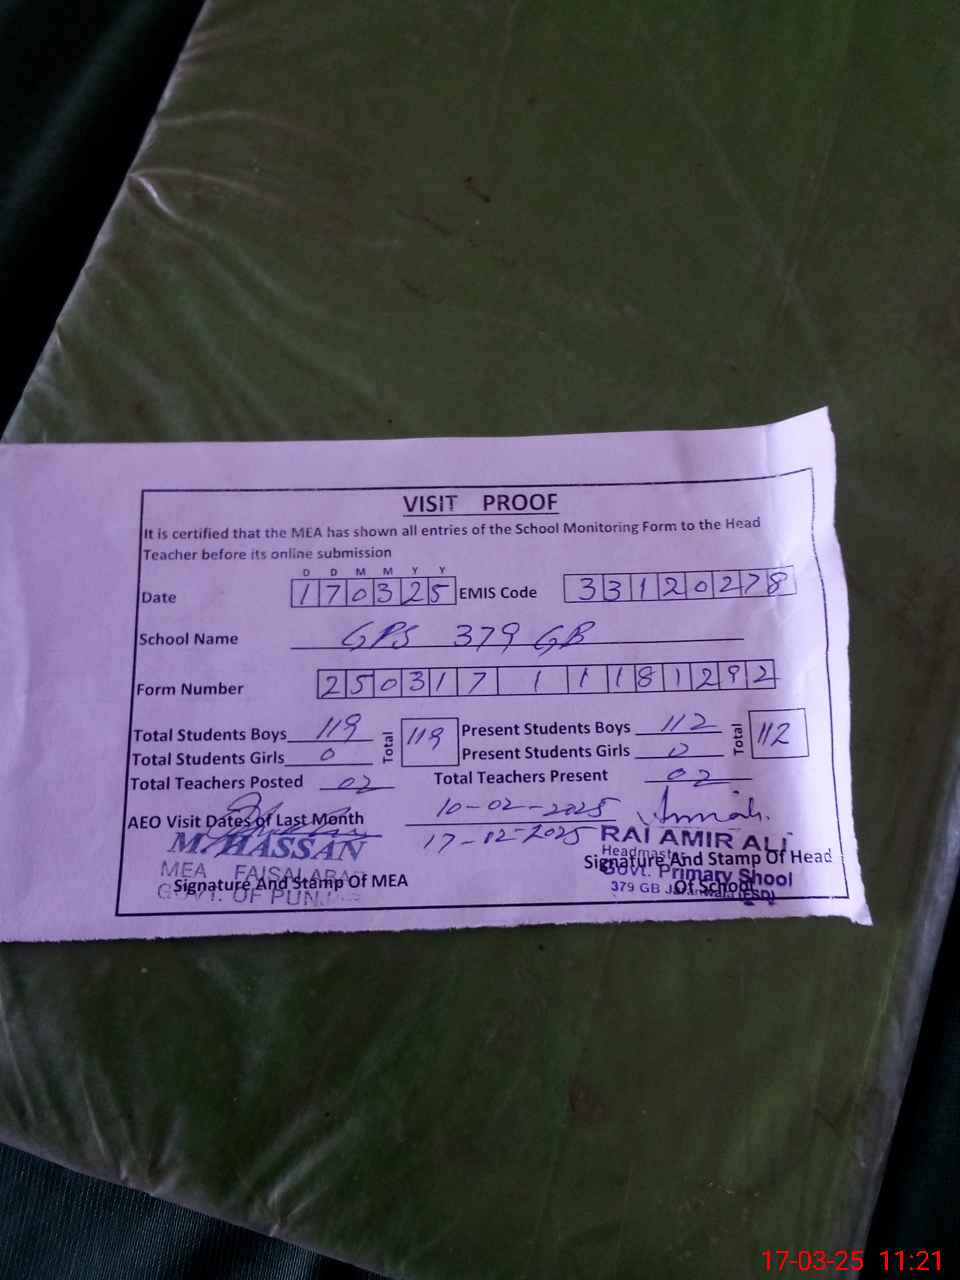 VISIT PROOF
It is certified that the MEA has shown all entries of the School Monitoring Form to the Head
Teacher before its online submission
D D M M Y Y
Date 170325 EMIS Code 33120278
School Name GPS 379 GB
Form Number 250317 1 1181292
Total Students Boys 119 Total 119 Present Students Boys 112 Total 112
Total Students Girls 0 Present Students Girls 0
Total Teachers Posted 02 Total Teachers Present 02
AEO Visit Dates of Last Month 10-02-2025
17-02-2025
M. HASSAN
MEA FAISALABAD
GOVT. OF PUNJ
Signature And Stamp Of MEA
RAI AMIR ALI
Headmaster
Signature And Stamp Of Head
Govt. Primary Shool
Of School
379 GB Jaranwala (FSD)
17-03-25 11:21